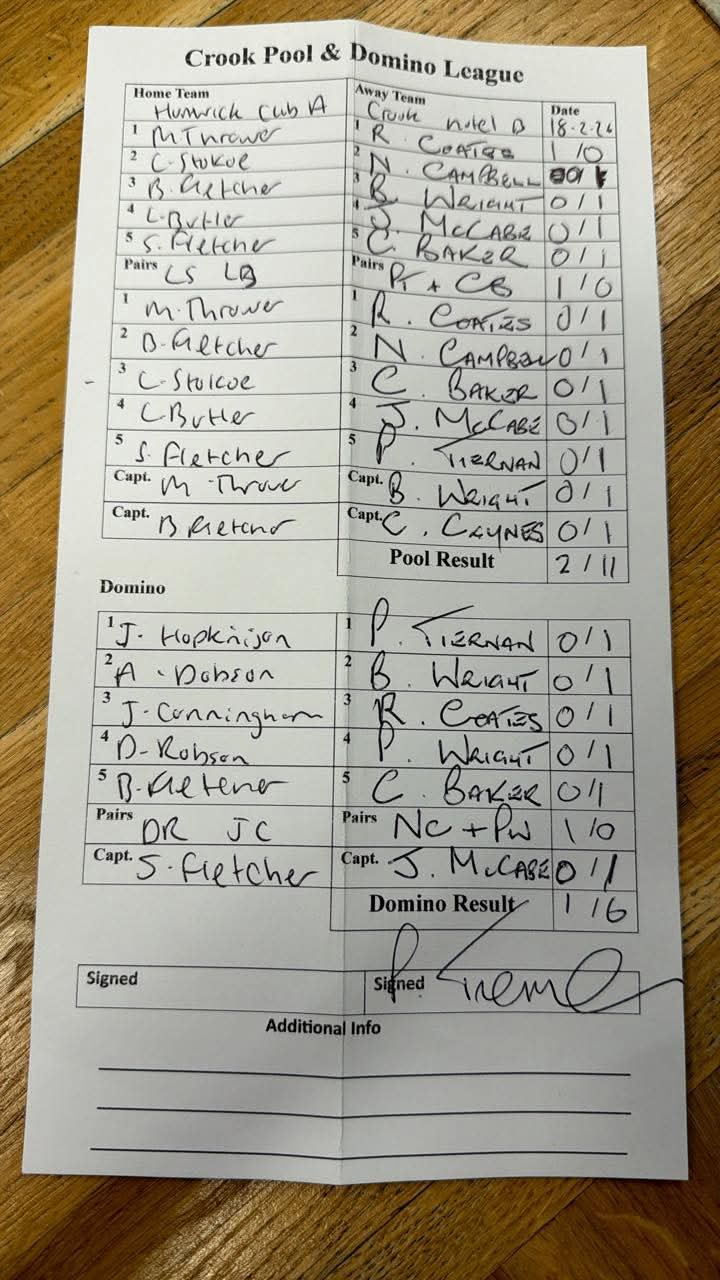 Crook Pool & Domino League
Home Team Away Team Date
Hunwick Club A Crook Hotel B 18-2-26
1 M Thrower 1 R. COATES 1/0
2 C. Stokoe 2 N. CAMPBELL 0/1
3 B. Fletcher 3 B. WRIGHT 0/1
4 L. Butler 4 J. McCABE 0/1
5 S. Fletcher 5 C. BAKER 0/1
Pairs CS LB Pairs PT + CB 1/0
1 M. Thrower 1 R. COATES 0/1
2 B. Fletcher 2 N. CAMPBELL 0/1
3 C. Stokoe 3 C. BAKER 0/1
4 L. Butler 4 J. McCABE 0/1
5 S. Fletcher 5 P. TIERNAN 0/1
Capt. M. Thrower Capt. B. WRIGHT 0/1
Capt. B Fletcher Capt. C. CAYNES 0/1
Pool Result 2/11
Domino
1 J. Hopkinson 1 P. TIERNAN 0/1
2 A. Dobson 2 B. WRIGHT 0/1
3 J. Cunningham 3 R. COATES 0/1
4 D. Robson 4 P. WRIGHT 0/1
5 B. Fletcher 5 C. BAKER 0/1
Pairs DR JC Pairs NC + PW 1/0
Capt. S. Fletcher Capt. J. McCABE 0/1
Domino Result 1/6
Signed Signed
Additional Info